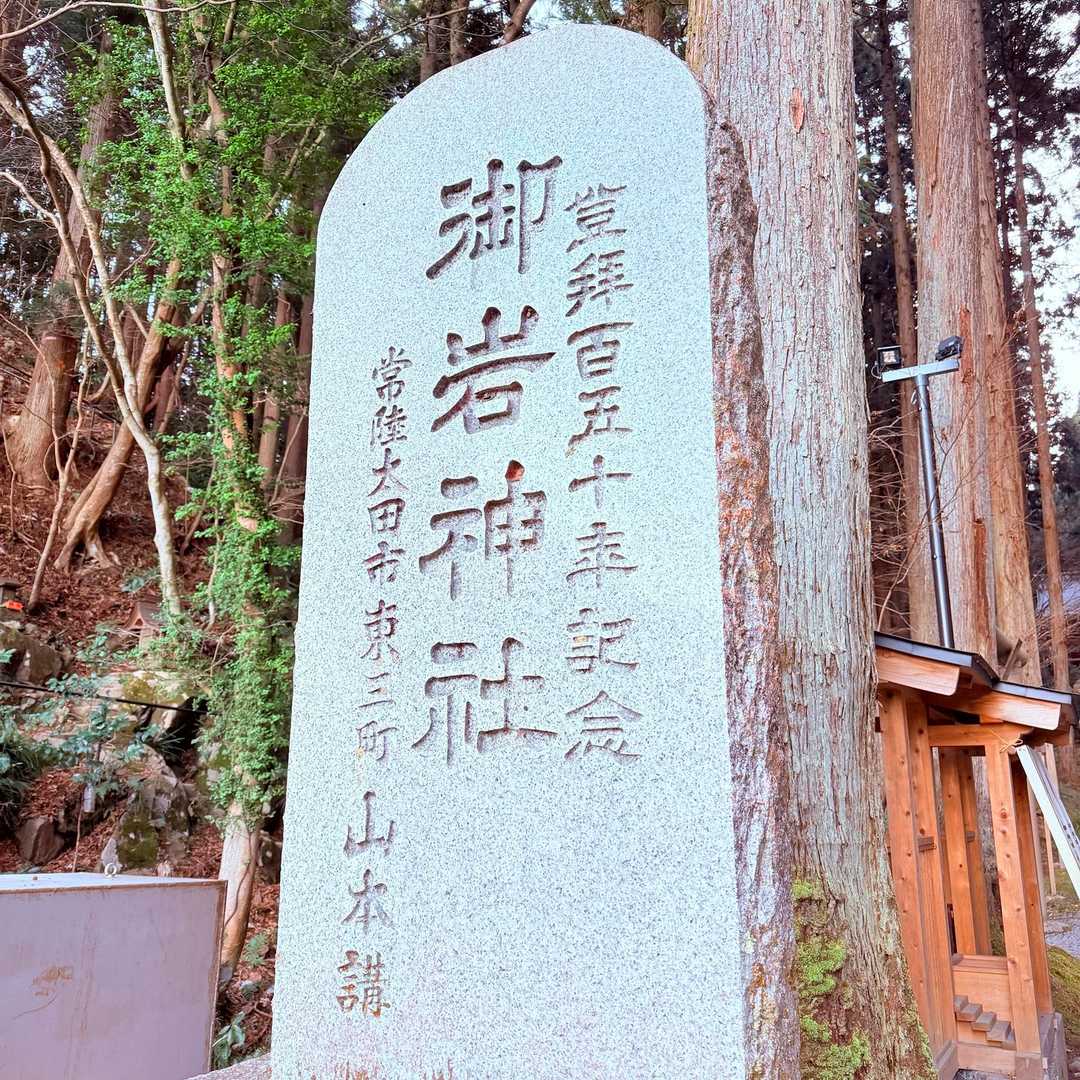 登拝百五十年記念
御岩神社
常陸太田市東三町 山本講